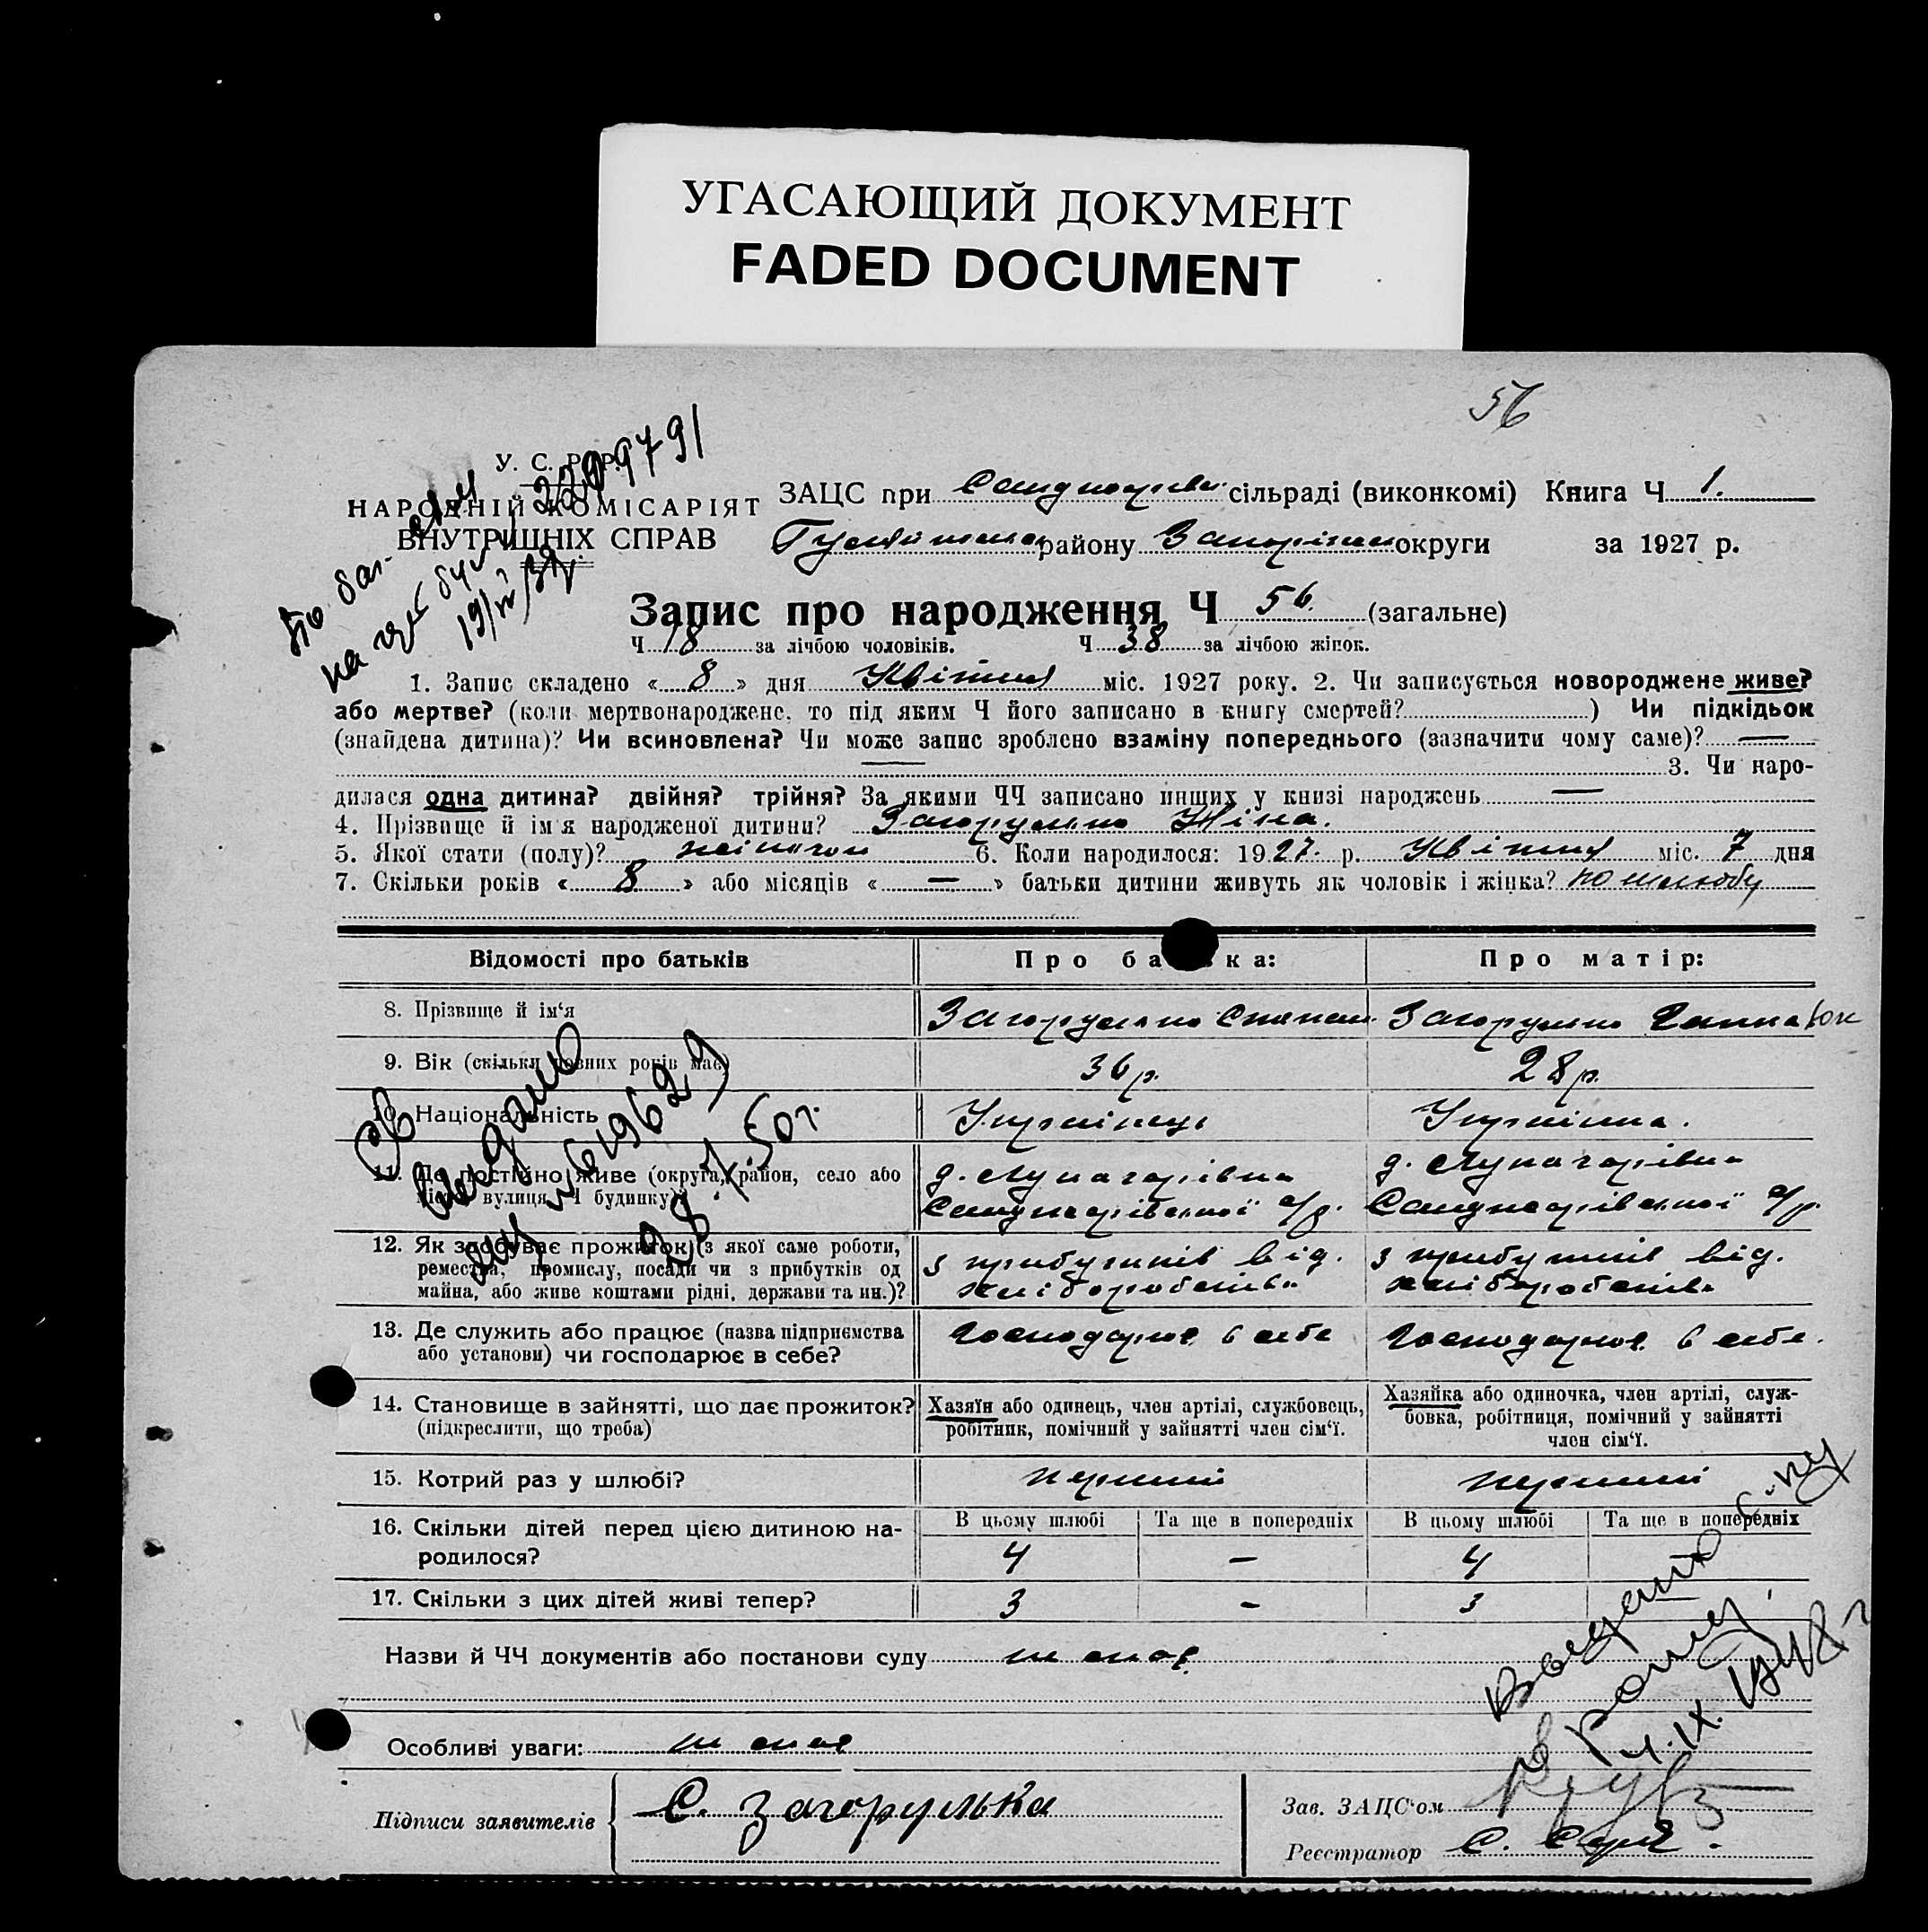 УГАСАЮЩИЙ ДОКУМЕНТ
FADED DOCUMENT
56
У. С. Р. Р.
НАРОДНІЙ КОМІСАРІЯТ
ВНУТРІШНІХ СПРАВ
19/
ЗАЦС при сільраді (виконкомі) Книга Ч 1.
району округи за 1927 р.
Запис про народження Ч 56. (загальне)
Ч 18 за лічбою чоловіків. Ч 38 за лічбою жінок.
1. Запис складено « 8 » дня Квітня міс. 1927 року. 2. Чи записується новороджене живе?
або мертве? (коли мертвонароджене, то під яким Ч його записано в книгу смертей? ) Чи підкідьок
(знайдена дитина)? Чи всиновлена? Чи може запис зроблено взаміну попереднього (зазначити чому саме)? —
— 3. Чи наро-
дилася одна дитина? двійня? трійня? За якими ЧЧ записано инших у книзі народжень —
4. Прізвище й ім'я народженої дитини? Загорулько Ніна.
5. Якої стати (полу)? жіночої 6. Коли народилося: 1927. р. Квітня міс. 7 дня
7. Скільки років « 8 » або місяців « — » батьки дитини живуть як чоловік і жінка? по шлюбу
Відомості про батьків Про батька: Про матір:
8. Прізвище й ім'я Загорулько Степан Загорулько Ганна
9. Вік (скільки повних років має) 36 р. 28 р.
10. Національність Українець Українка.
11. Де постійно живе (округа, район, село або
місто, вулиця, Ч будинку)?
12. Як здобуває прожиток (з якої саме роботи, з прибутків від. з прибутків від.
ремества, промислу, посади чи з прибутків од хліборобства хліборобства
майна, або живе коштами рідні, держави та ин.)?
13. Де служить або працює (назва підприємства Господарює в себе Господарює в себе.
або установи) чи господарює в себе?
14. Становище в зайнятті, що дає прожиток? Хазяїн або одинець, член артілі, службовець, Хазяйка або одиночка, член артілі, служ-
(підкреслити, що треба) робітник, помічний у зайнятті член сім'ї. бовка, робітниця, помічний у зайнятті
член сім'ї.
15. Котрий раз у шлюбі? перший перший
В цьому шлюбі Та ще в попередніх В цьому шлюбі Та ще в попередніх
16. Скільки дітей перед цією дитиною на- 4 — 4
родилося?
17. Скільки з цих дітей живі тепер? 3 — 3
Назви й ЧЧ документів або постанови суду
Особливі уваги:
Підписи заявителів С. Загорулька
Зав. ЗАЦС'ом
Реєстратор С.